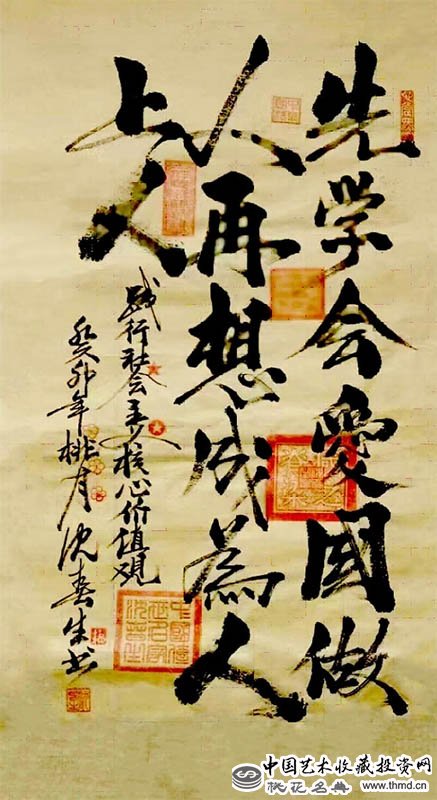 先学会爱国做
人再想成为人
上人
践行社会主义核心价值观
癸卯年桃月沈春生书
中国艺术收藏投资网
桃花名典 www.thmd.cn